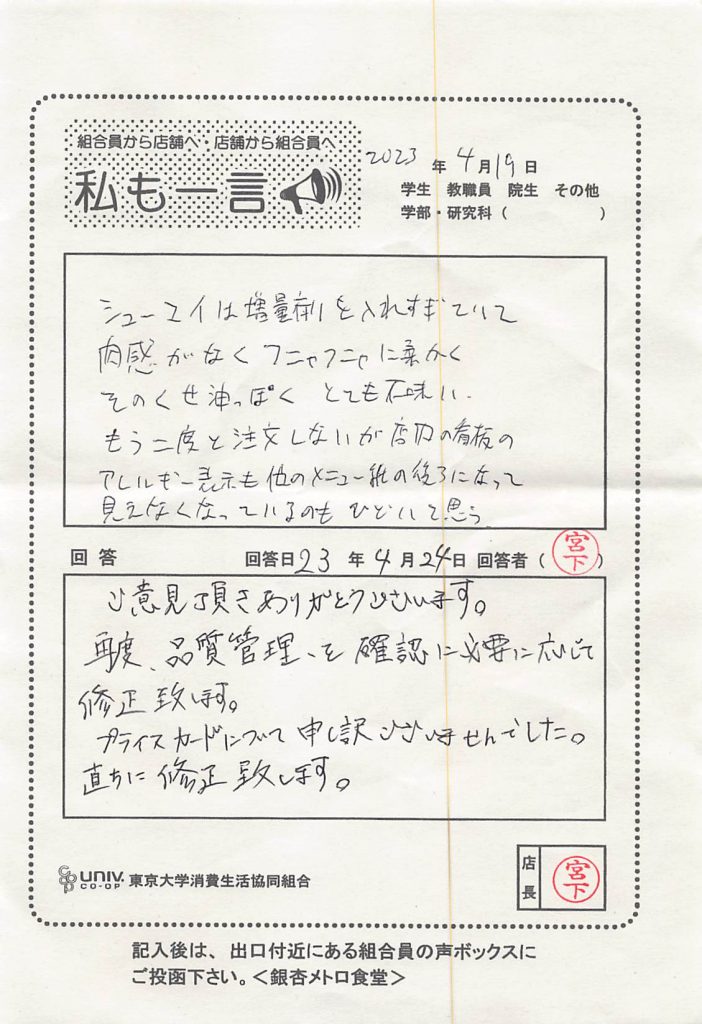 組合員から店舗へ・店舗から組合員へ
私も一言
2023年4月19日
学生 教職員 院生 その他
学部・研究科( )
シューマイは増量剤を入れすぎていて
肉感がなくフニャフニャに柔かく
そのくせ油っぽく とても不味い.
もう二度と注文しないが店内の看板の
アレルギー表示も他のメニュー紙の後ろになって
見えなくなっているのもひどいと思う.
回答 回答日23年4月24日 回答者(宮下)
ご意見頂きありがとうございます。
再度、品質管理、を確認に必要に応じて
修正致します。
プライスカードについて申し訳ございませんでした。
直ちに修正致します。
UNIV. CO-OP 東京大学消費生活協同組合
店長 宮下
記入後は、出口付近にある組合員の声ボックスに
ご投函下さい。<銀杏メトロ食堂>